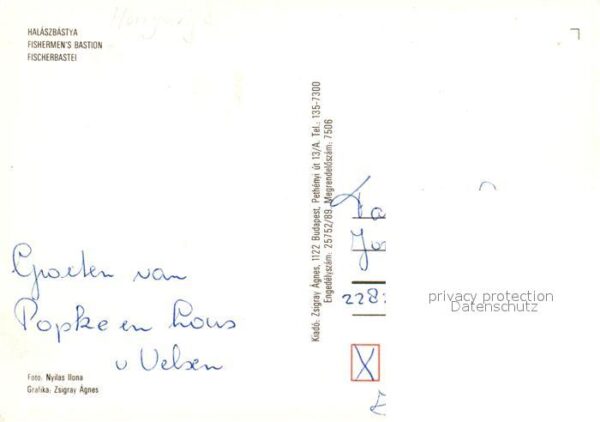 Hongarije
HALÁSZBÁSTYA
FISHERMEN'S BASTION
FISCHERBASTEI
Groeten van
Popke en Lous
v Velsen
Foto: Nyilas Ilona
Grafika: Zsigray Ágnes
Kiadó: Zsigray Ágnes, 1122 Budapest, Pethényi út 13/A. Tel.: 135-7300
Engedélyszám: 25752/89. Megrendelőszám: 7506
Fa
Jo
2282
X
privacy protection
Datenschutz